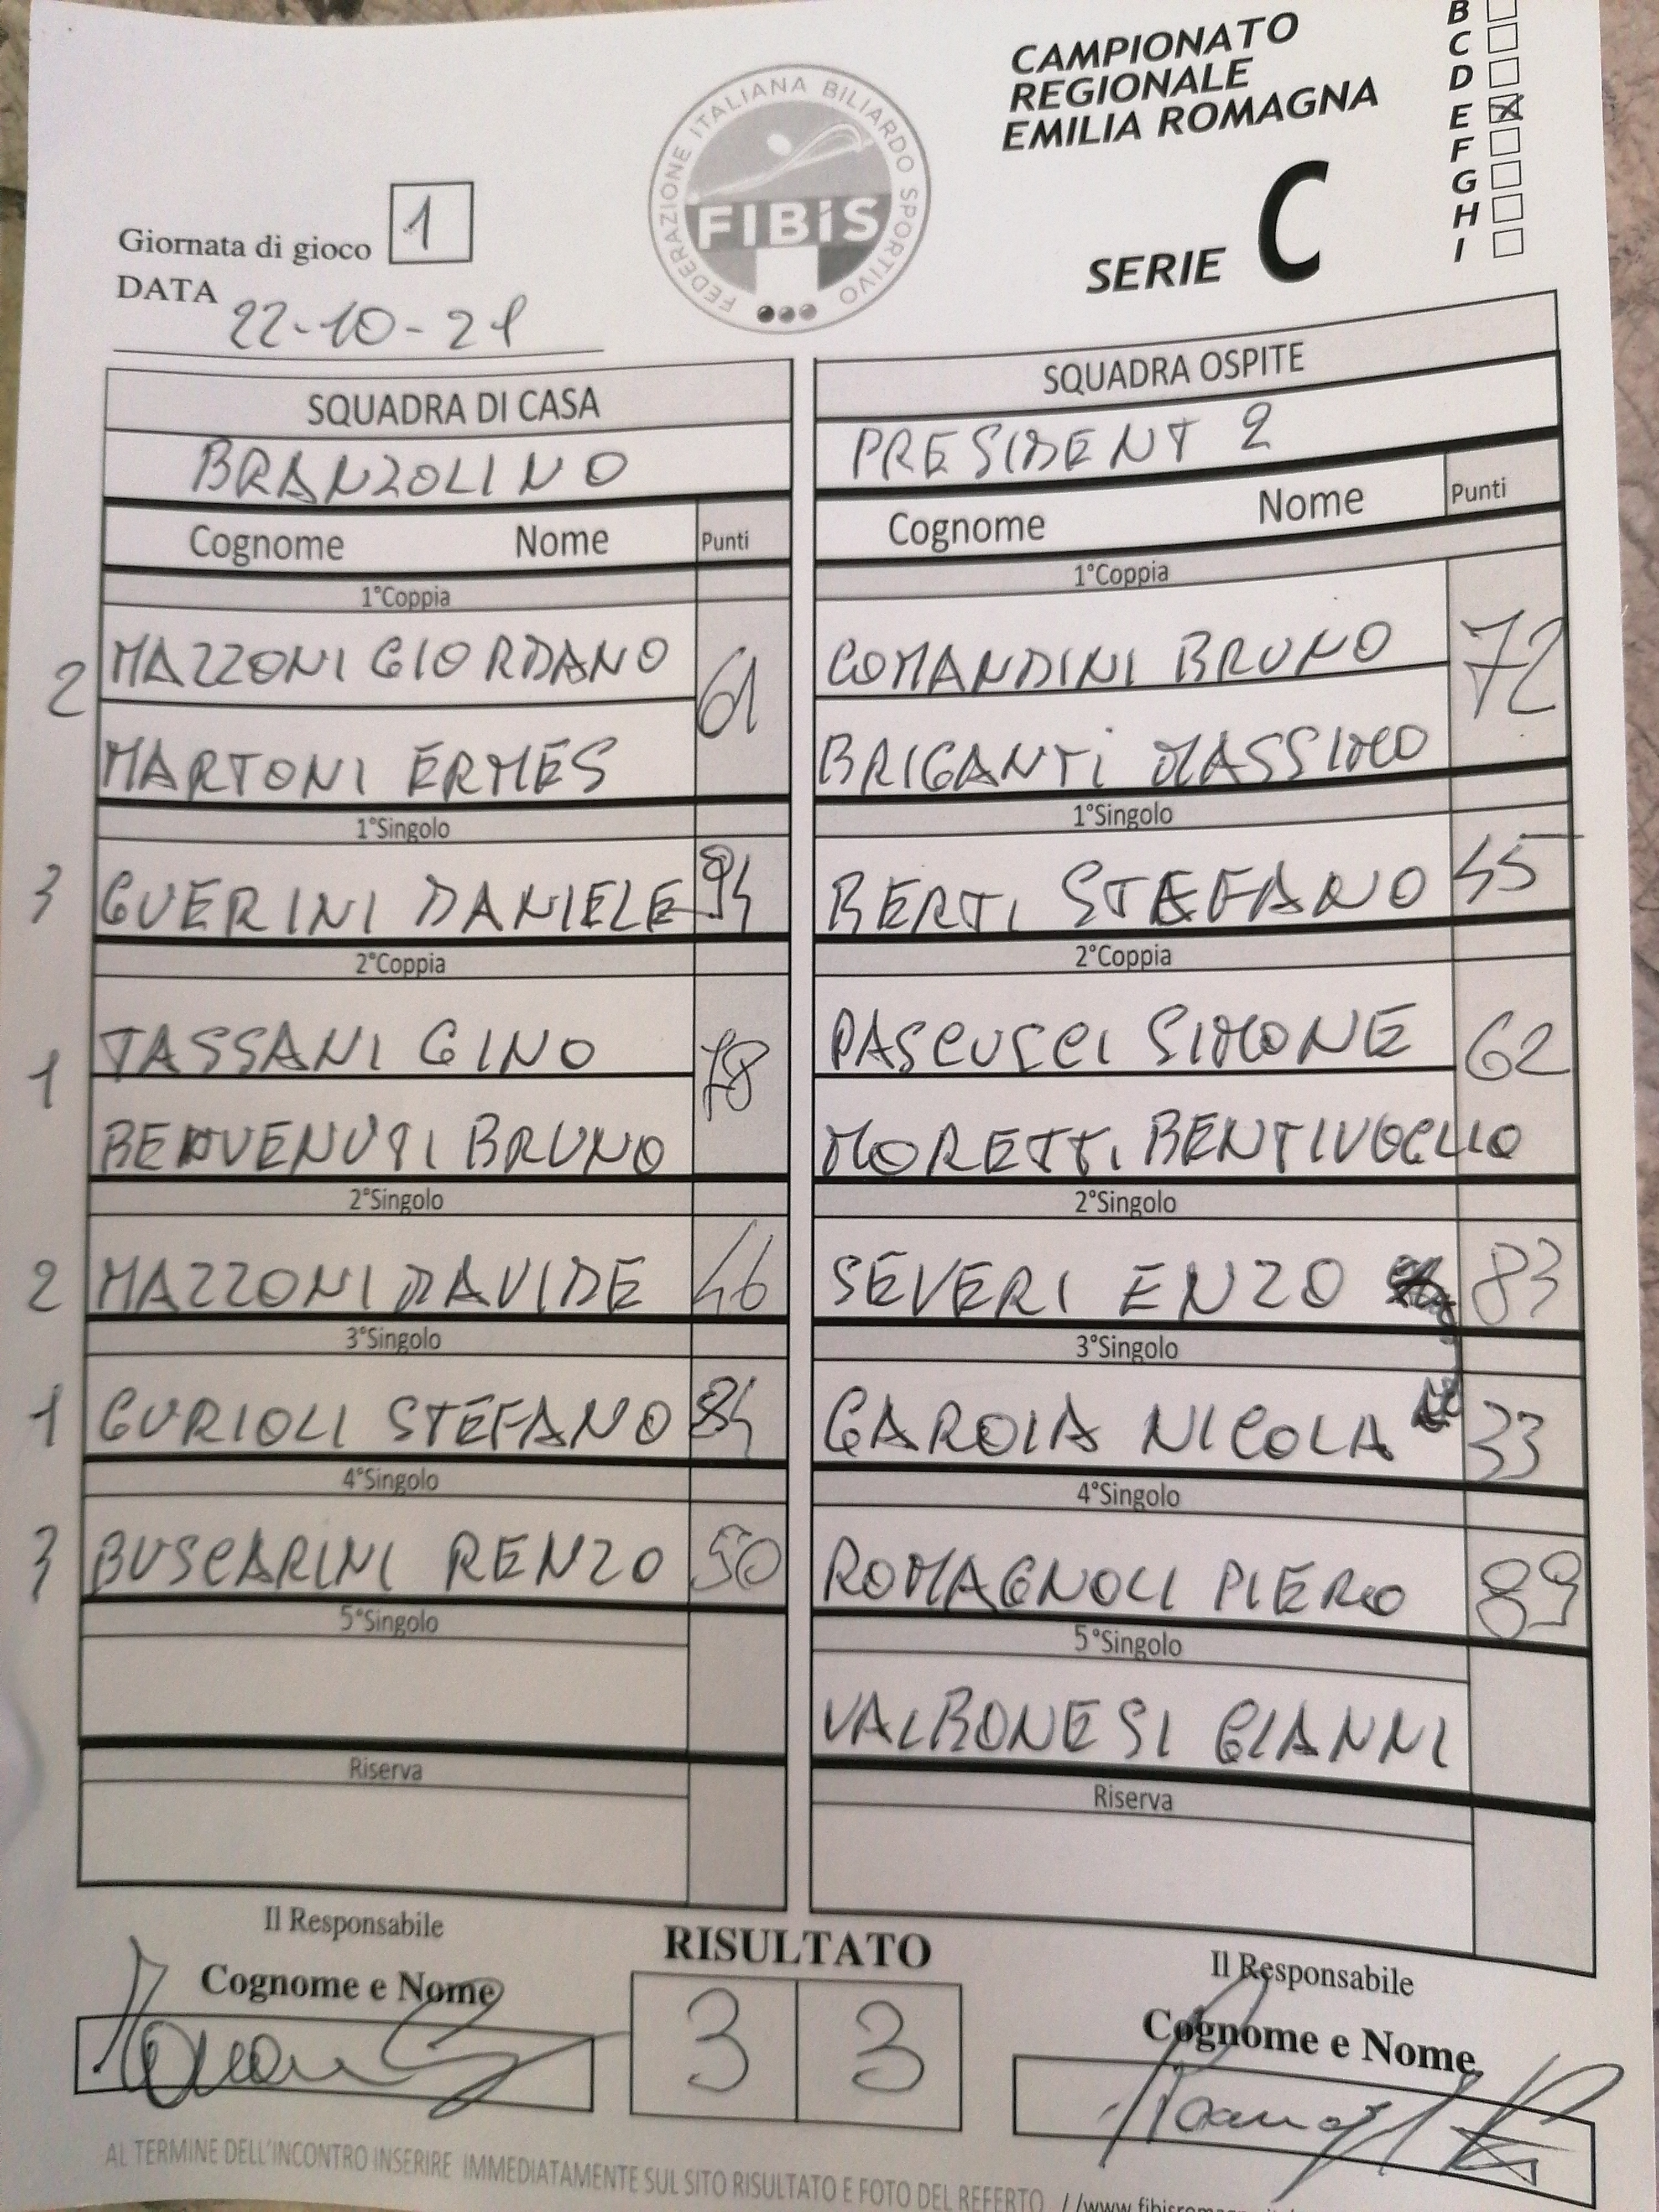 CAMPIONATO
REGIONALE
EMILIA ROMAGNA
SERIE C
B
C
D
E
F
G
H
I
FEDERAZIONE ITALIANA BILIARDO SPORTIVO
FIBiS
Giornata di gioco 1
DATA 22-10-21
SQUADRA DI CASA
BRANZOLINO
Cognome Nome Punti
1°Coppia
2 MAZZONI GIORDANO 61
MARTONI ERMES
1°Singolo
3 GUERINI DANIELE 94
2°Coppia
1 TASSANI GINO 78
BENVENUTI BRUNO
2°Singolo
2 MAZZONI DAVIDE 46
3°Singolo
1 GURIOLI STEFANO 84
4°Singolo
3 BUSCARINI RENZO 50
5°Singolo
Riserva
SQUADRA OSPITE
PRESIDENT 2
Cognome Nome Punti
1°Coppia
COMANDINI BRUNO 72
BRIGANTi MASSIMO
1°Singolo
BERTI STEFANO 45
2°Coppia
PASCUCCI SIMONE 62
MORETTI BENTIVOGLIO
2°Singolo
SEVERI ENZO 83
3°Singolo
GAROIA NICOLA 33
4°Singolo
ROMAGNOLI PIERO 89
5°Singolo
VALBONESI GIANNI
Riserva
Il Responsabile
Cognome e Nome
RISULTATO
3 3
Il Responsabile
Cognome e Nome
AL TERMINE DELL'INCONTRO INSERIRE IMMEDIATAMENTE SUL SITO RISULTATO E FOTO DEL REFERTO